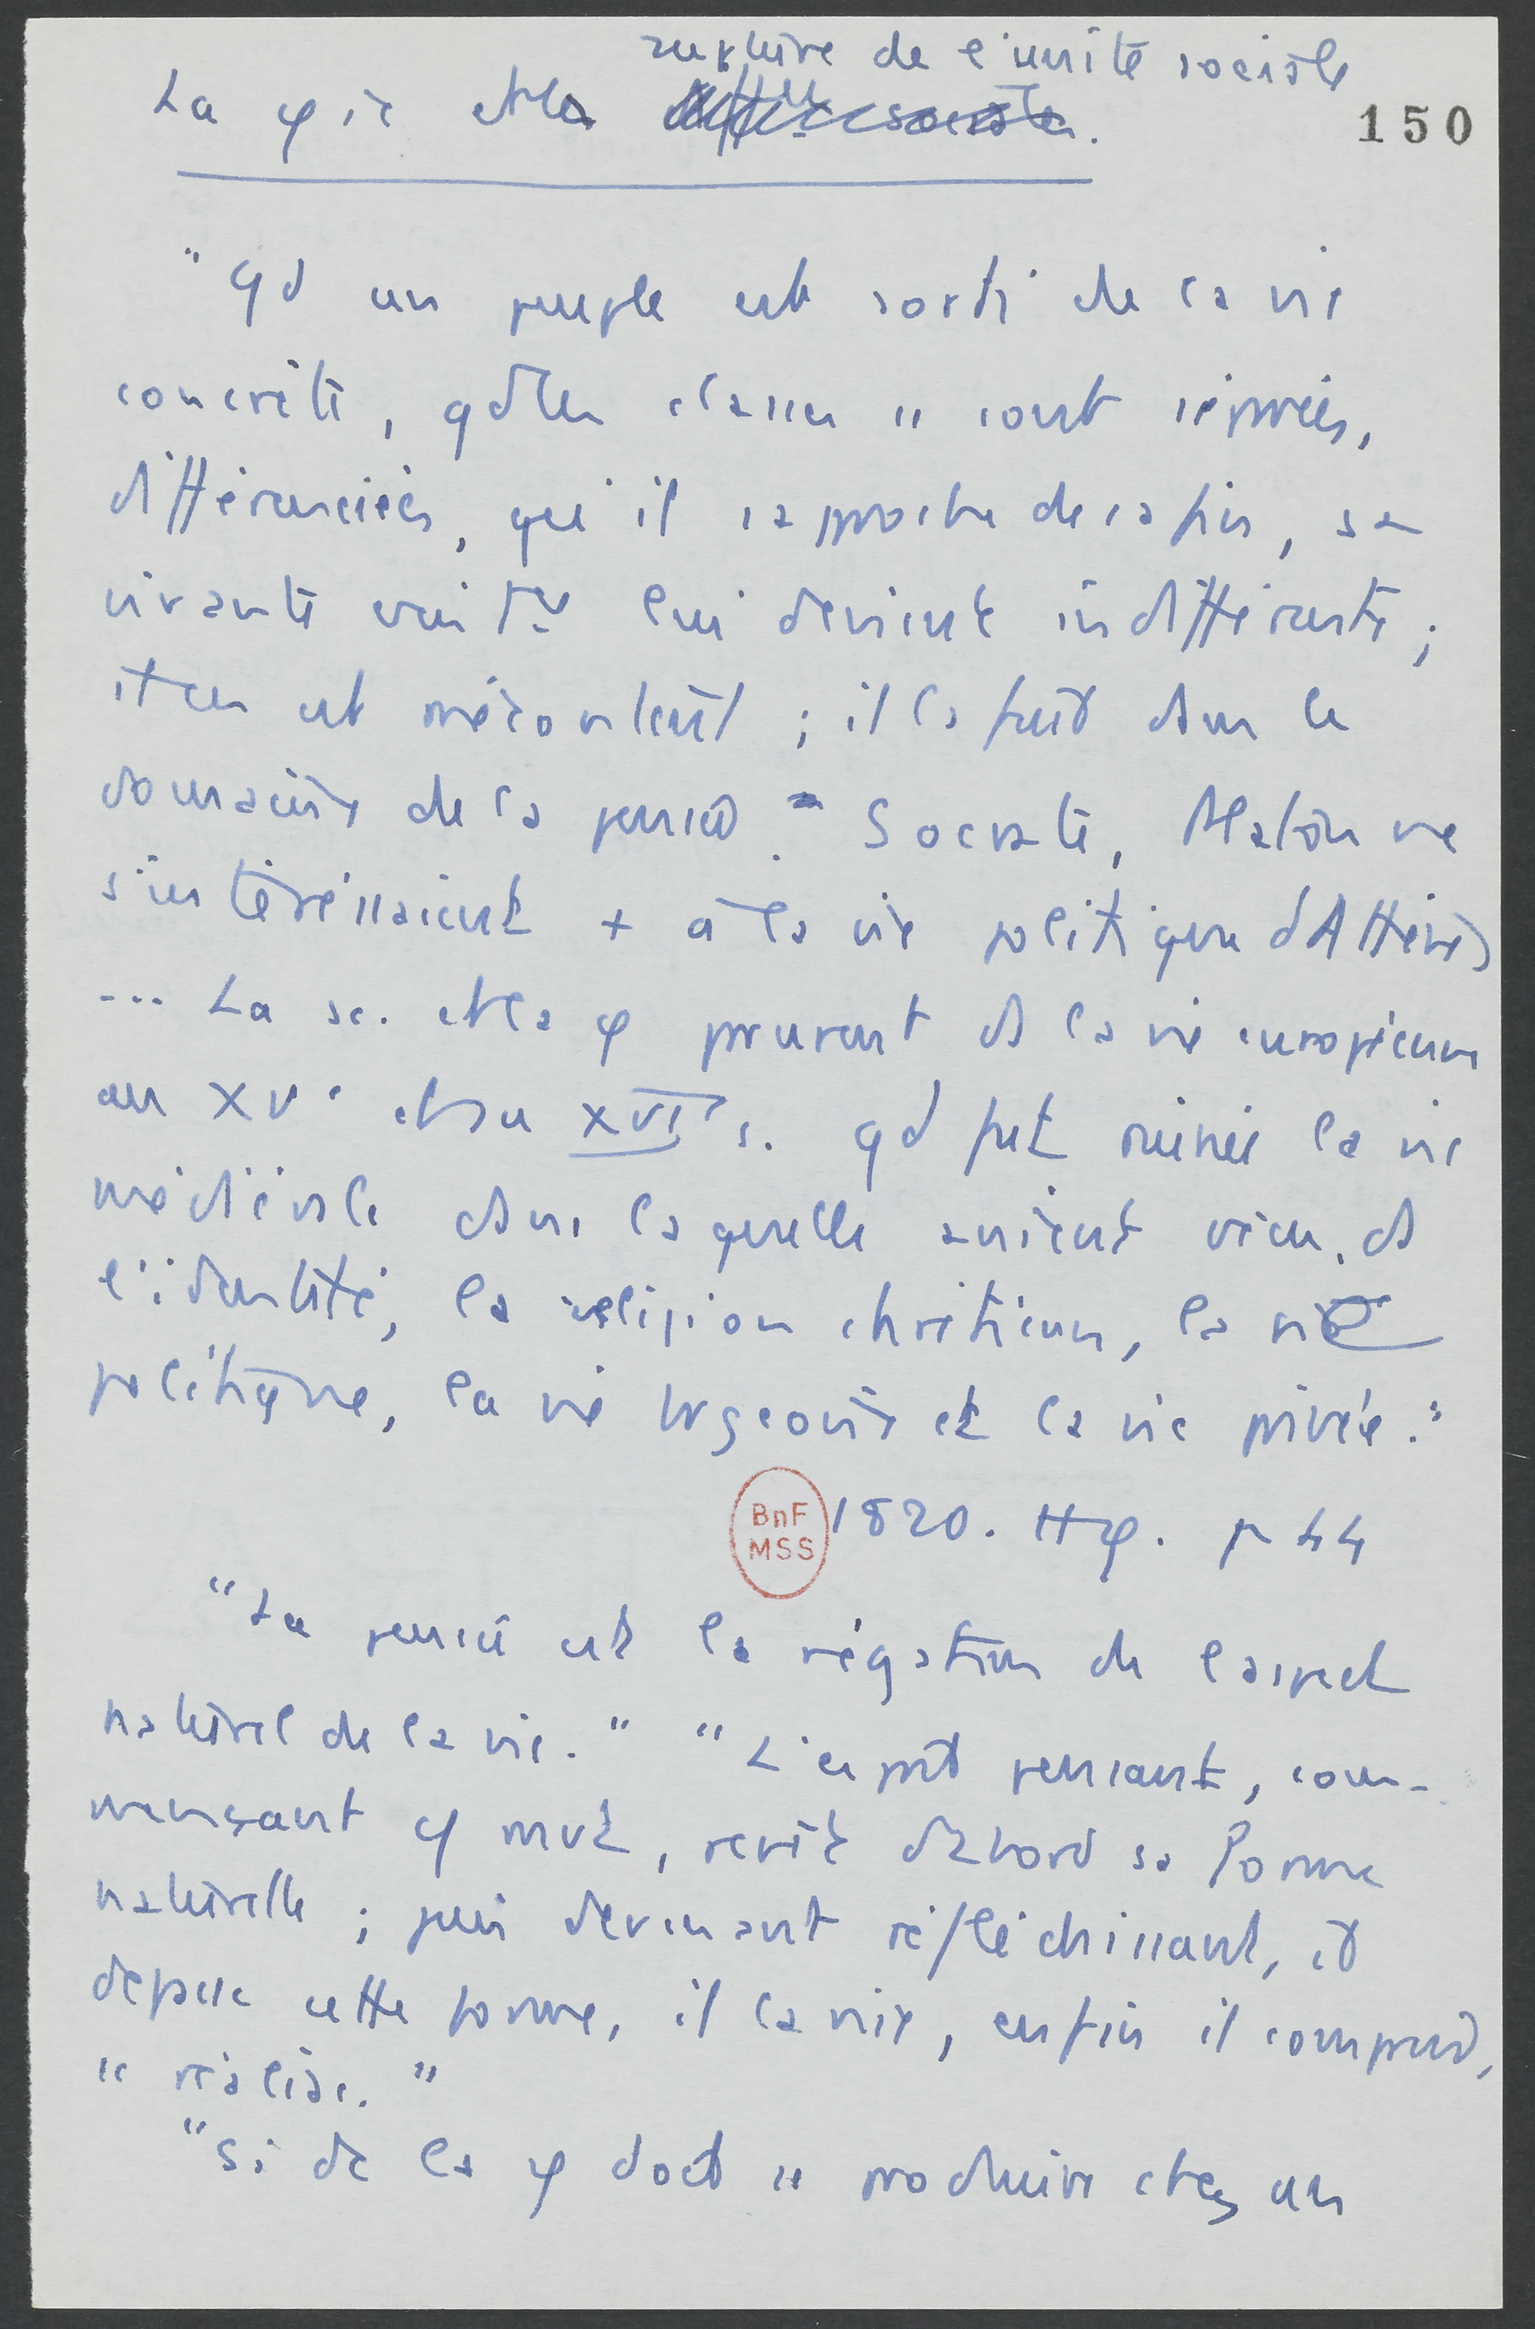 rupture de l'unité sociale
La φie et la différe sociale.
150
"Qd un peuple est sorti de sa vie
concrète, qd les classes se sont séparées,
différenciées, qu'il s'approche de sa fin, sa
vivante unité lui devient indifférente ;
il en est mécontent ; il la fuit dans le
domaine de la pensée." Socrate, Platon ne
s'intéressaient + à la vie politique d'Athènes
... La sc. et la φ prirent ds la vie européenne
au XVe et au XVIe s. qd fut ruinée la vie
médiévale dans laquelle avaient vécu, ds
l'identité, la religion chrétienne, la vie
politique, la vie brgeoise et la vie privée."
BnF
MSS
1820. Hφ. p 44
"La pensée est la négation de l'aspect
naturel de la vie." "L'esprit pensant, com-
mençant φ mvt, revêt d'abord sa forme
naturelle ; puis devenant réfléchissant, il
dépasse cette forme, il la nie, enfin il comprend,
se réalise."
"Si dc la φ doit se produire chez un